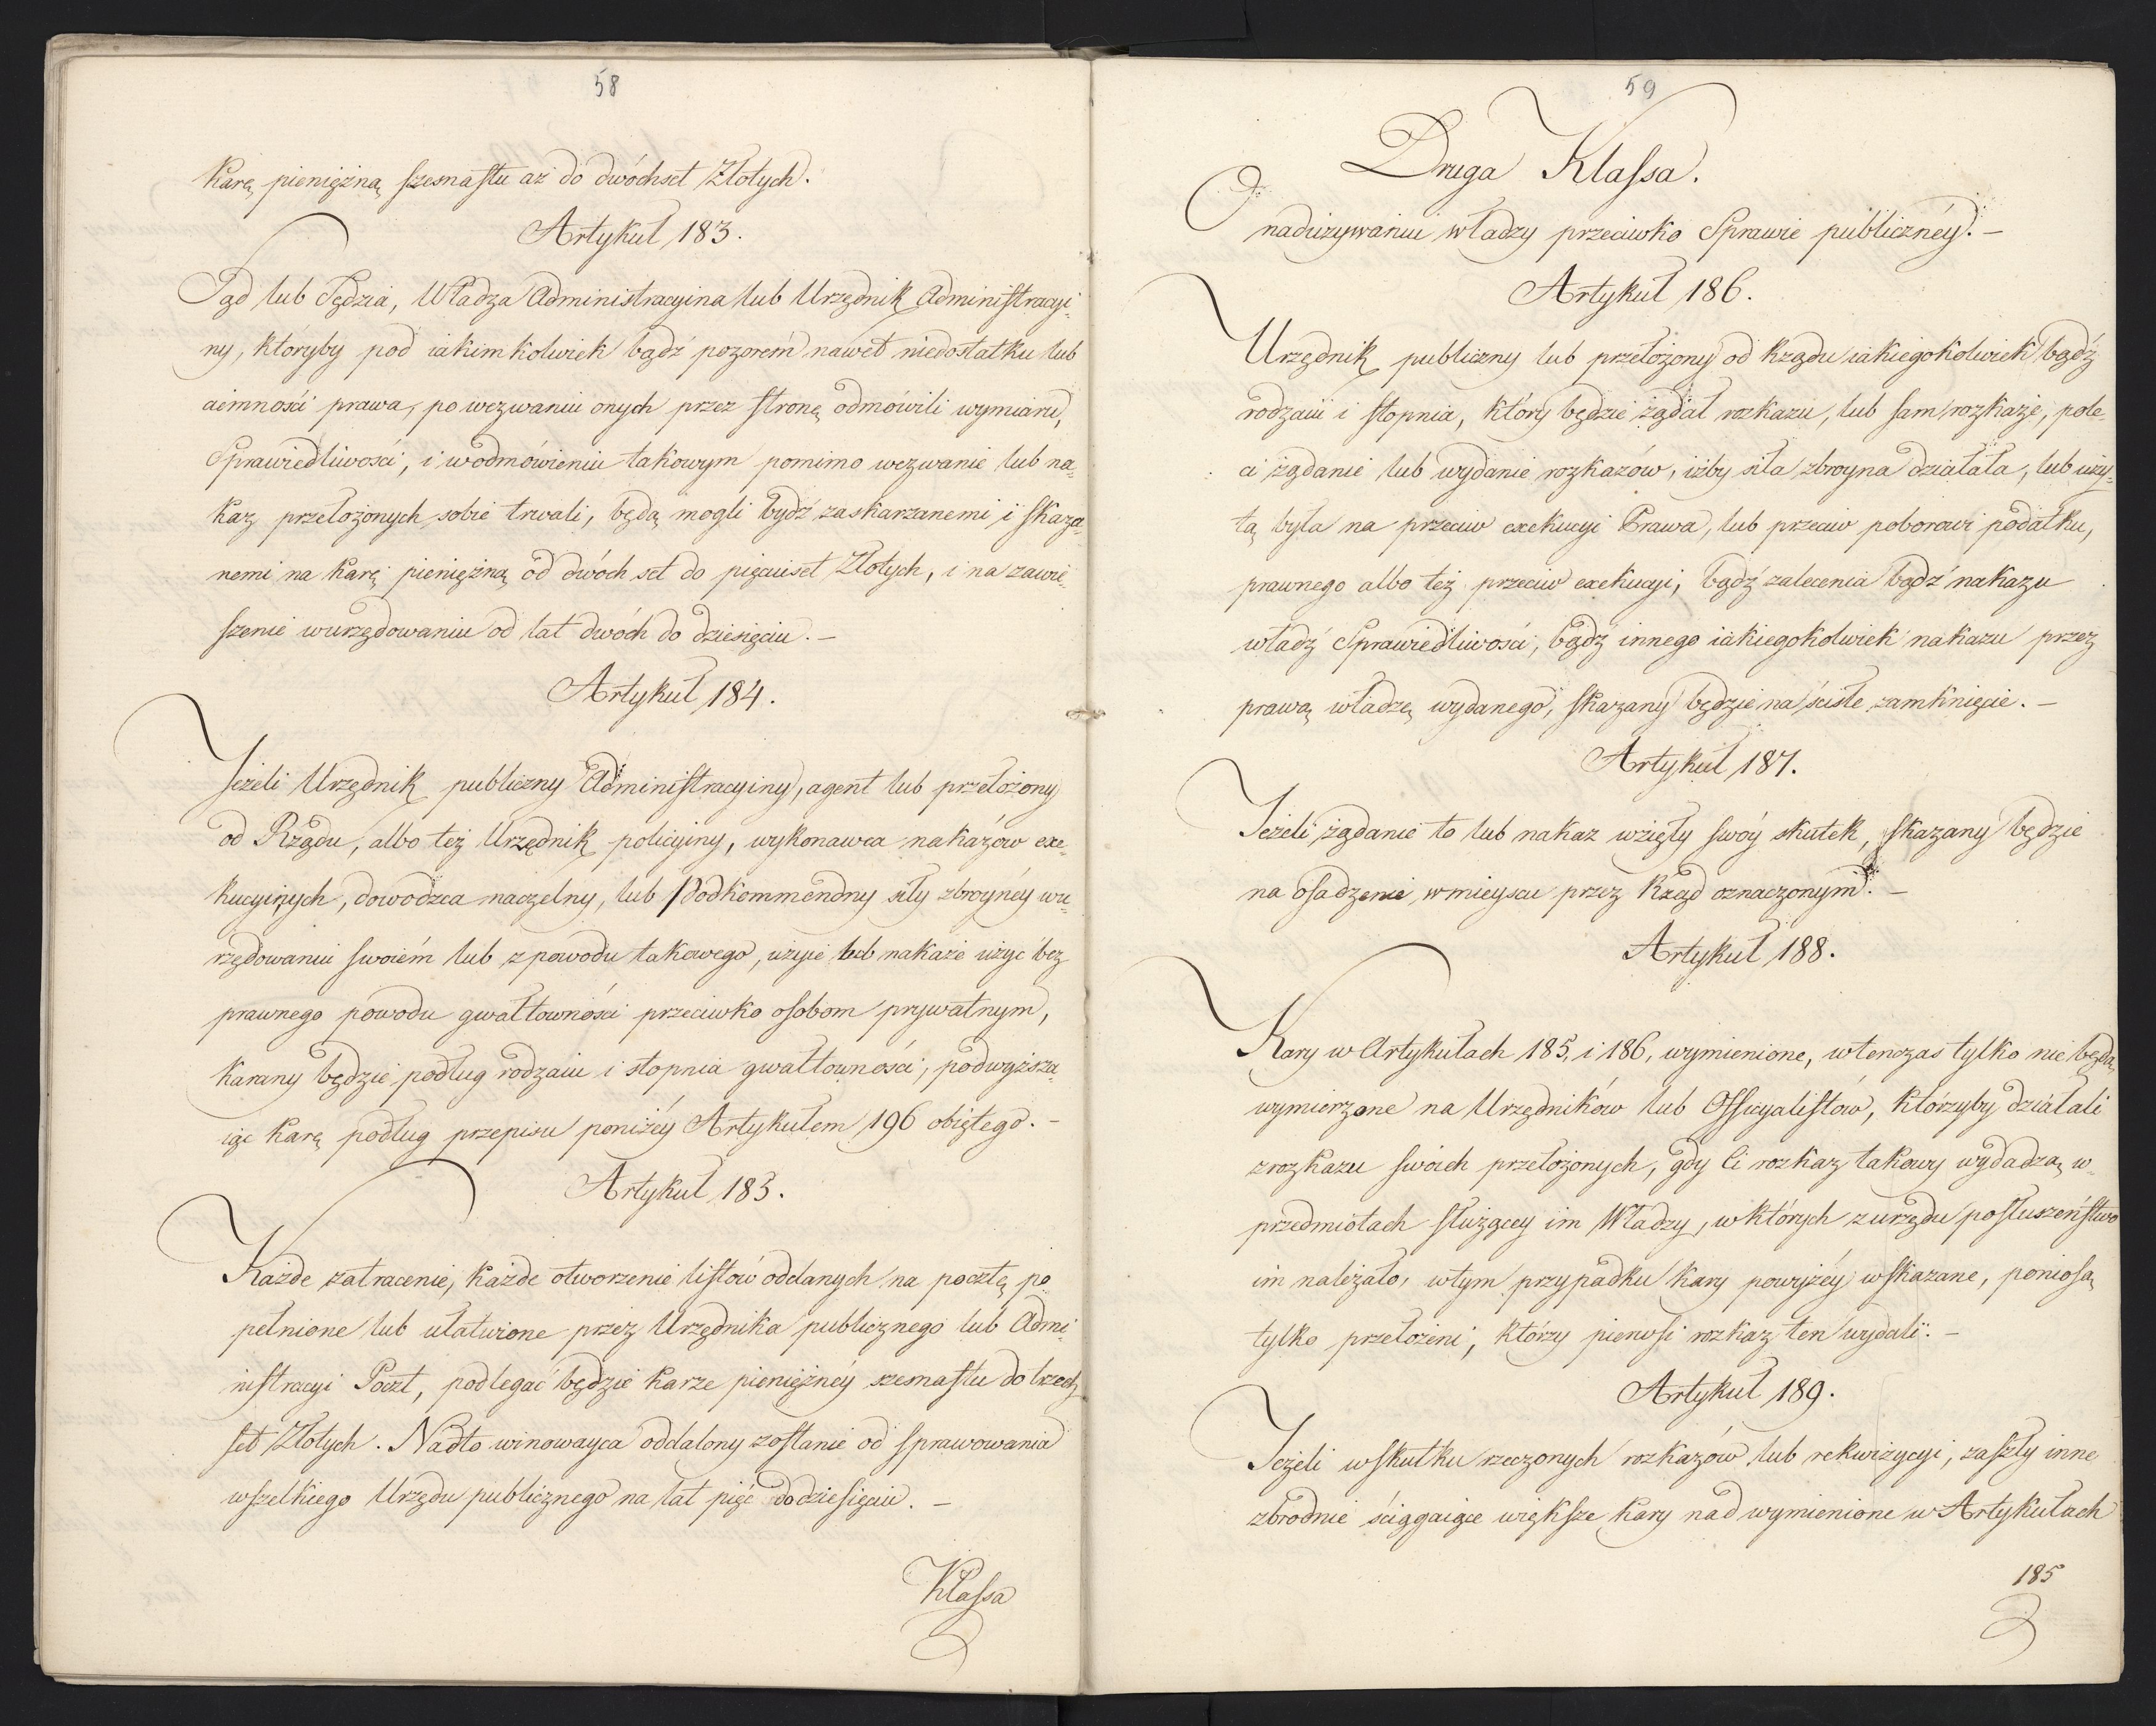 58
karę pieniężną szesnastu aż do dwóchset Złotych.
Artykuł 183.
Sąd lub Sędzia, Władza Administracyina lub Urzędnik Administracyi-
ny, któryby pod iakimkolwiek bądź pozorem nawet niedostatku lub
ciemności prawa, po wezwaniu onych przez stronę odmówili wymiaru,
Sprawiedliwości, i w odmówieniu takowym pomimo wezwanie lub na-
kaz przełożonych sobie trwali, będą mogli bydź zaskarzanemi i skaza-
nemi na karę pieniężną od dwóch set do pięciuset Złotych, i na zawie-
szenie w urzędowaniu od lat dwóch do dziesięciu. –
Artykuł 184.
Jeżeli Urzędnik publiczny Administracyiny, agent lub przełożony
od Rządu, albo też Urzędnik policyiny, wykonawca nakazów exe-
kucyinych, dowodzca naczelny, lub Podkommendny siły zbroynéy w u-
rzędowaniu swoiém lub z powodu takowego, użyie lub nakaże użyc bez
prawnego powodu gwałtowności przeciwko osobom prywatnym,
karany będzie podług rodzaiu i stopnia gwałtowności, podwyższa-
iąc karę podług przepisu poniżéy Artykułem 196 obiętego. –
Artykuł 185.
Każde zatracenie, każde otworzenie listów oddanych na pocztę po-
pełnione lub ułatwione przez Urzędnika publicznego lub Admi-
nistracyi Poczt, podlegać będzie karze pieniężnéy szesnastu do trzech
set Złotych. Nadto winowayca oddalony zostanie od sprawowania
wszelkiego Urzędu publicznego na lat pięć do dziesięciu. –
Klassa
59
Druga Klassa.
O
nadużywaniu władzy przeciwko Sprawie publicznéy. –
Artykuł 186.
Urzędnik publiczny lub przełożony od Rządu iakiegokolwiek bądź
rodzaiu i stopnia, który będzie żądał rozkazu, lub sam rozkaże, pole-
ci żądanie lub wydanie rozkazów, iżby siła zbroyna działała, lub uży-
tą była na przeciw exekucyi Prawa, lub przeciw poborowi podatku,
prawnego albo też przeciw exekucyi, bądź zalecenia bądź nakazu
władz Sprawiedliwości, bądź innego iakiegokolwiek nakazu przez
prawą władzę wydanego, skazany będzie na ścisłe zamknięcie. –
Artykuł 187.
Jeżeli żądanie to lub nakaz wzięły swóy skutek, skazany będzie
na osadzenie w mieyscu przez Rząd oznaczonym. –
Artykuł 188.
Kary w Artykułach 185, i 186, wymienione, wtenczas tylko nie będą
wymierzone na Urzędników lub Officyalistów, którzyby działali
z rozkazu swoich przełożonych, gdy ci rozkaz takowy wydadzą w-
przedmiotach służącey im Władzy, w których z urzędu posłuszeństwo
im należało, w tym przypadku kary powyżéy wskazane, poniosą
tylko przełożeni, którzy pierwsi rozkaz ten wydali. –
Artykuł 189.
Jeżeli w skutku rzeczonych rozkazów lub rekwizycyi, zaszły inne
zbrodnie ściągaiące większe kary nad wymienione w Artykułach
185